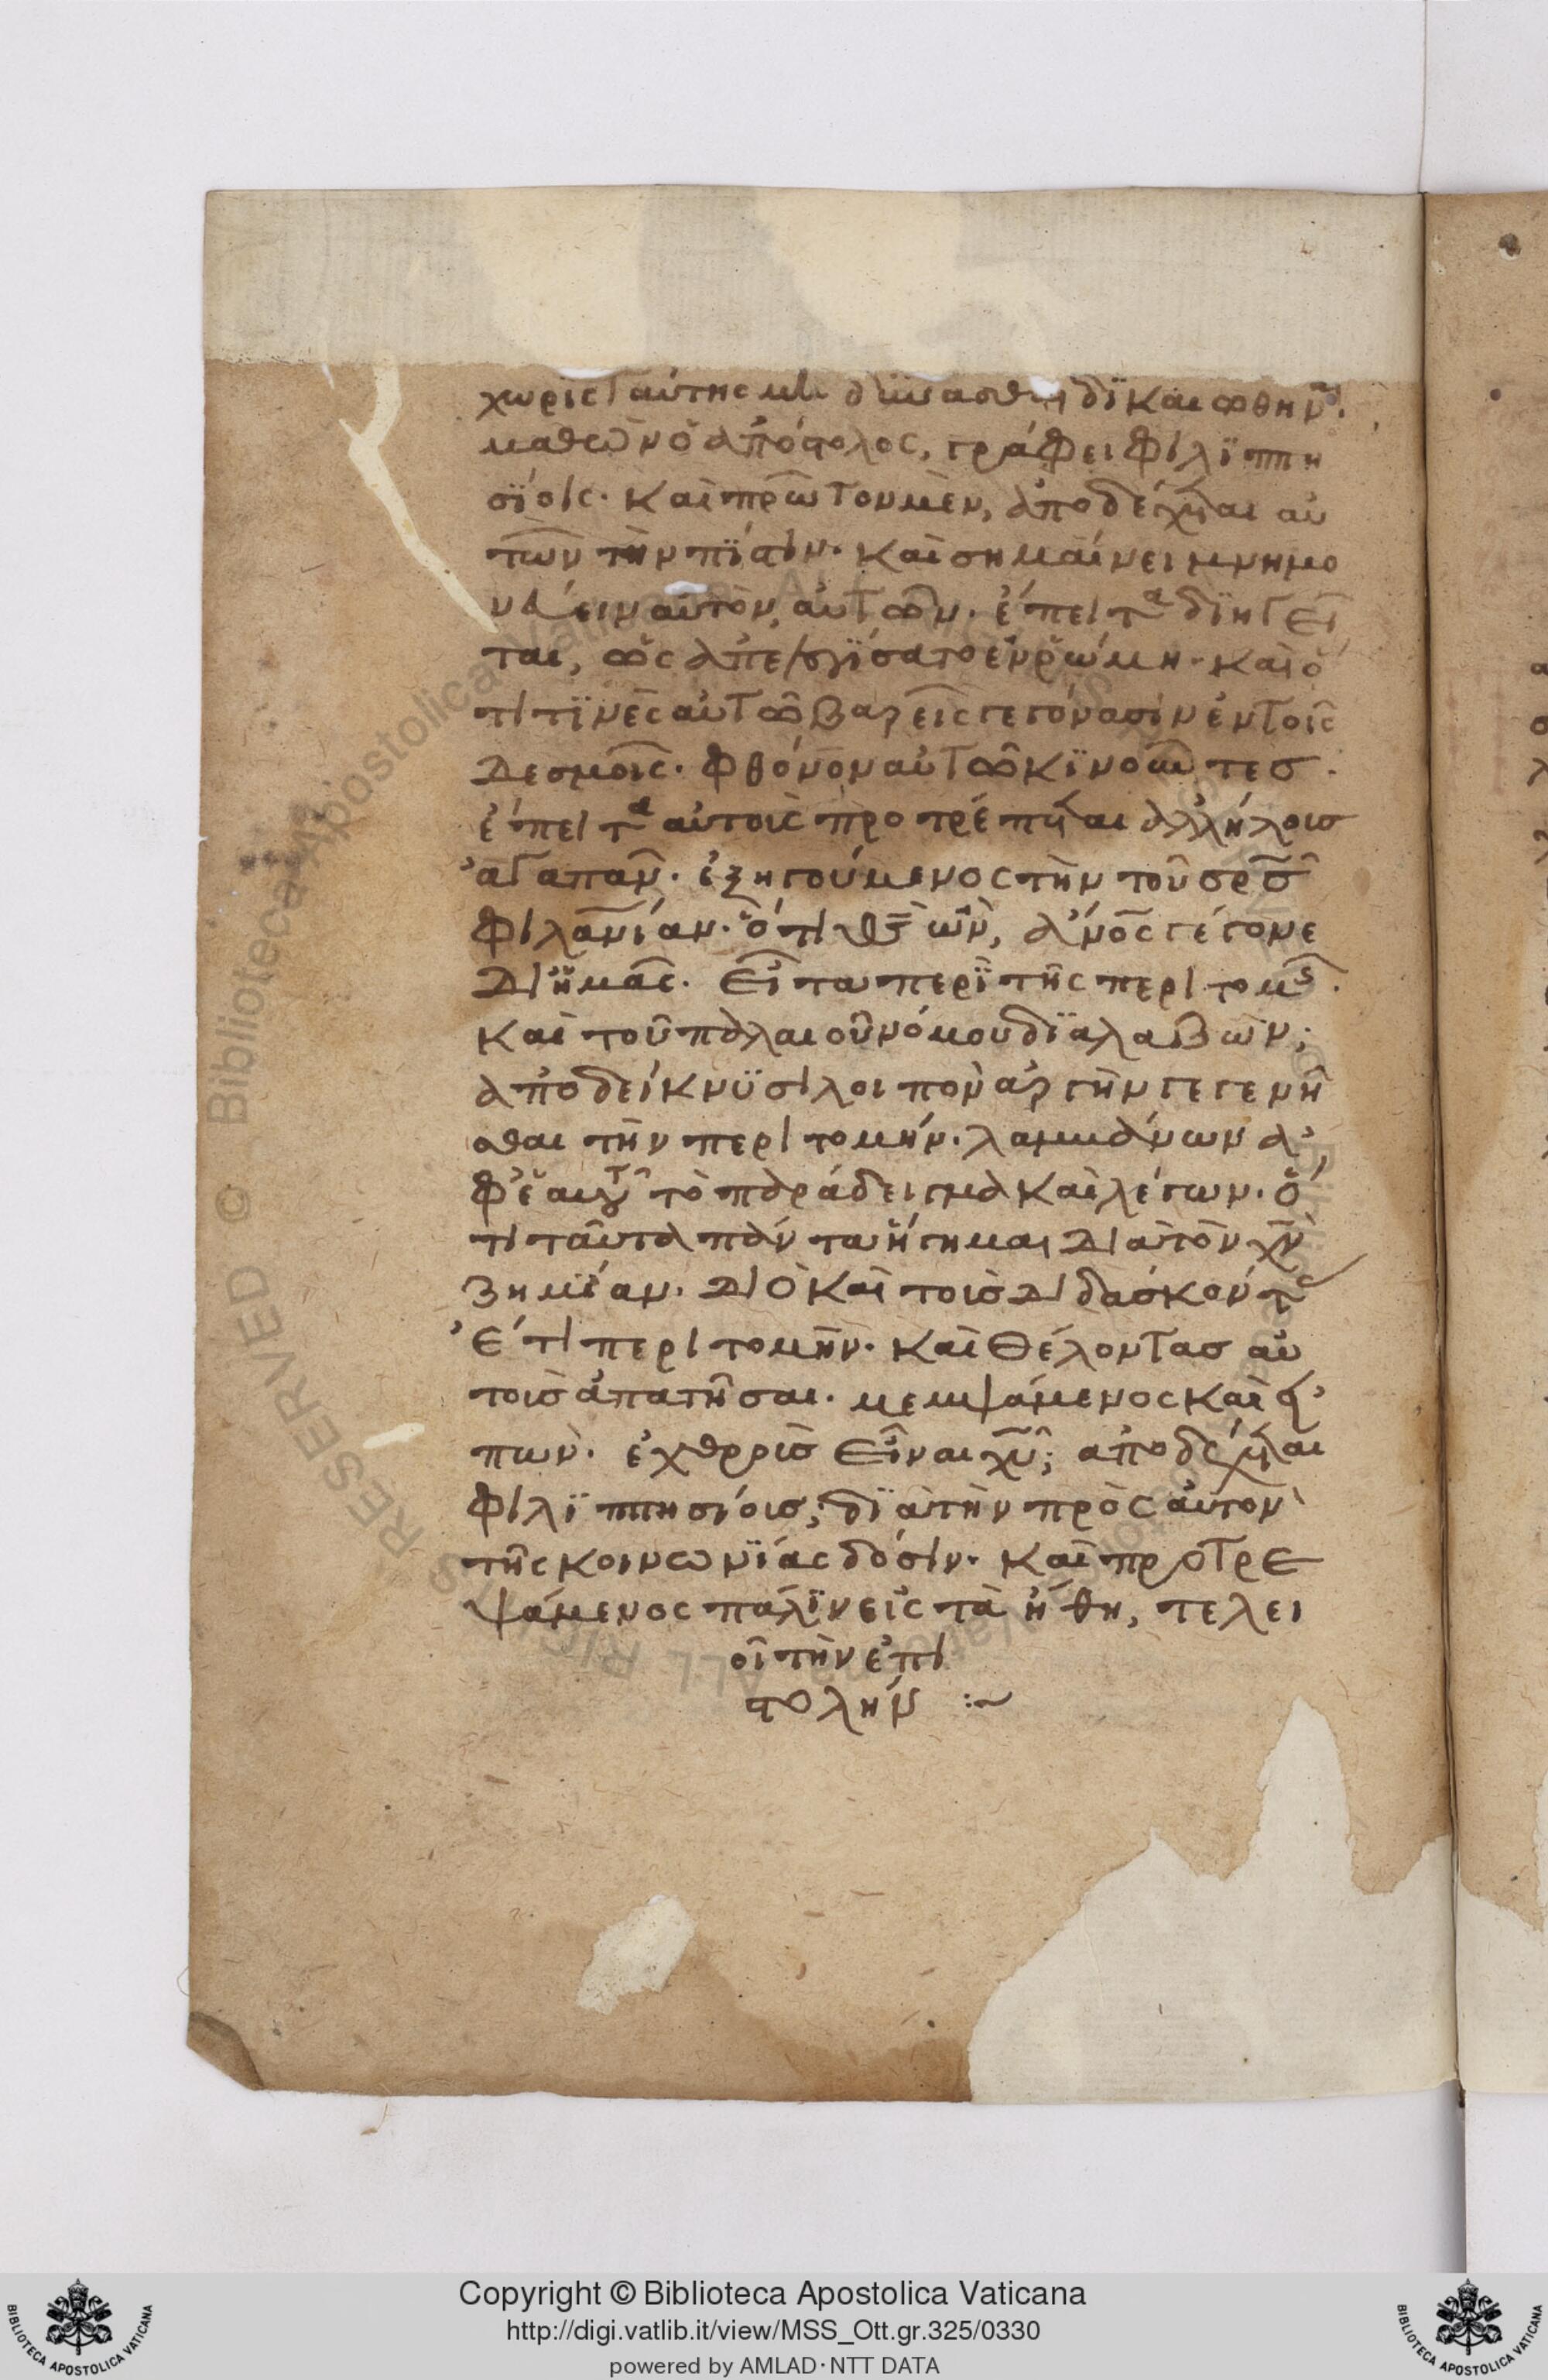 χωρὶς ταύτης μὴ δύνασθαι δϊκαιωθῆναι.
μαθὼν ὁ ἀπόστολος, γράφει φιλϊππη
σΐοις· καὶ πρῶτον μὲν, ἀποδέχεται αὐ
τῶν τὴν πΐστιν· καὶ σημαίνει μνημο
νεύειν αὐτὸν αὐτῶν· ἔπειτα δϊηγεῖ
ται, ὡς ἀπελογΐσατο ἐν ῥώμη· καὶ ὅ
τι τϊνὲς αὐτῶ βαρεῖς γεγόνασιν ἐν τοῖς
δεσμοῖς· φθόνον αὐτῶ κϊνοῦντεσ·
ἔπειτα αὐτοὺς προτρέπεται ἀλλήλουσ
ἀγαπᾶν· ἐξηγούμενος τὴν τοῦ σρ̅σ
φιλανι̅αν· ὅτι θσ̅ ὢν, ἀνο̅ς γέγονε
δι ἡμᾶς· εἶτα περὶ τῆς περιτομῆς·
καὶ τοῦ παλαιοῦ νόμου διαλαβὼν;
ἀποδείκνϋσι λοιπὸν ἀργὴν γεγενῆ
σθαι τὴν περιτομήν· λαμβάνων ἀ
φ' ἑαυτοῦ τὸ παράδειγμα καὶ λέγων· ὅ
τι ταῦτα πάντα ἥγημαι διὰ τὸν χν̅
ζημΐαν· διὸ καὶ τοὺσ διδάσκοντας
ἔτι περιτομὴν· καὶ θέλοντασ αὐ
τοὺσ ἀπατῆσαι· μεμψάμενος καὶ εἰ
πὼν· ἐχθροὺσ εἶναι χυ̅; ἀποδέχεται
φιλϊππησίουσ; δϊὰ τὴν πρὸς αὐτὸν
τῆς κοινωνΐας δόσιν· καὶ προτρε
ψάμενος πάλϊν εἰς τὰ ἤθη, τελει
οῖ τὴν ἐπι
στολήν :~
Copyright © Biblioteca Apostolica Vaticana
http://digi.vatlib.it/view/MSS_Ott.gr.325/0330
powered by AMLAD·NTT DATA